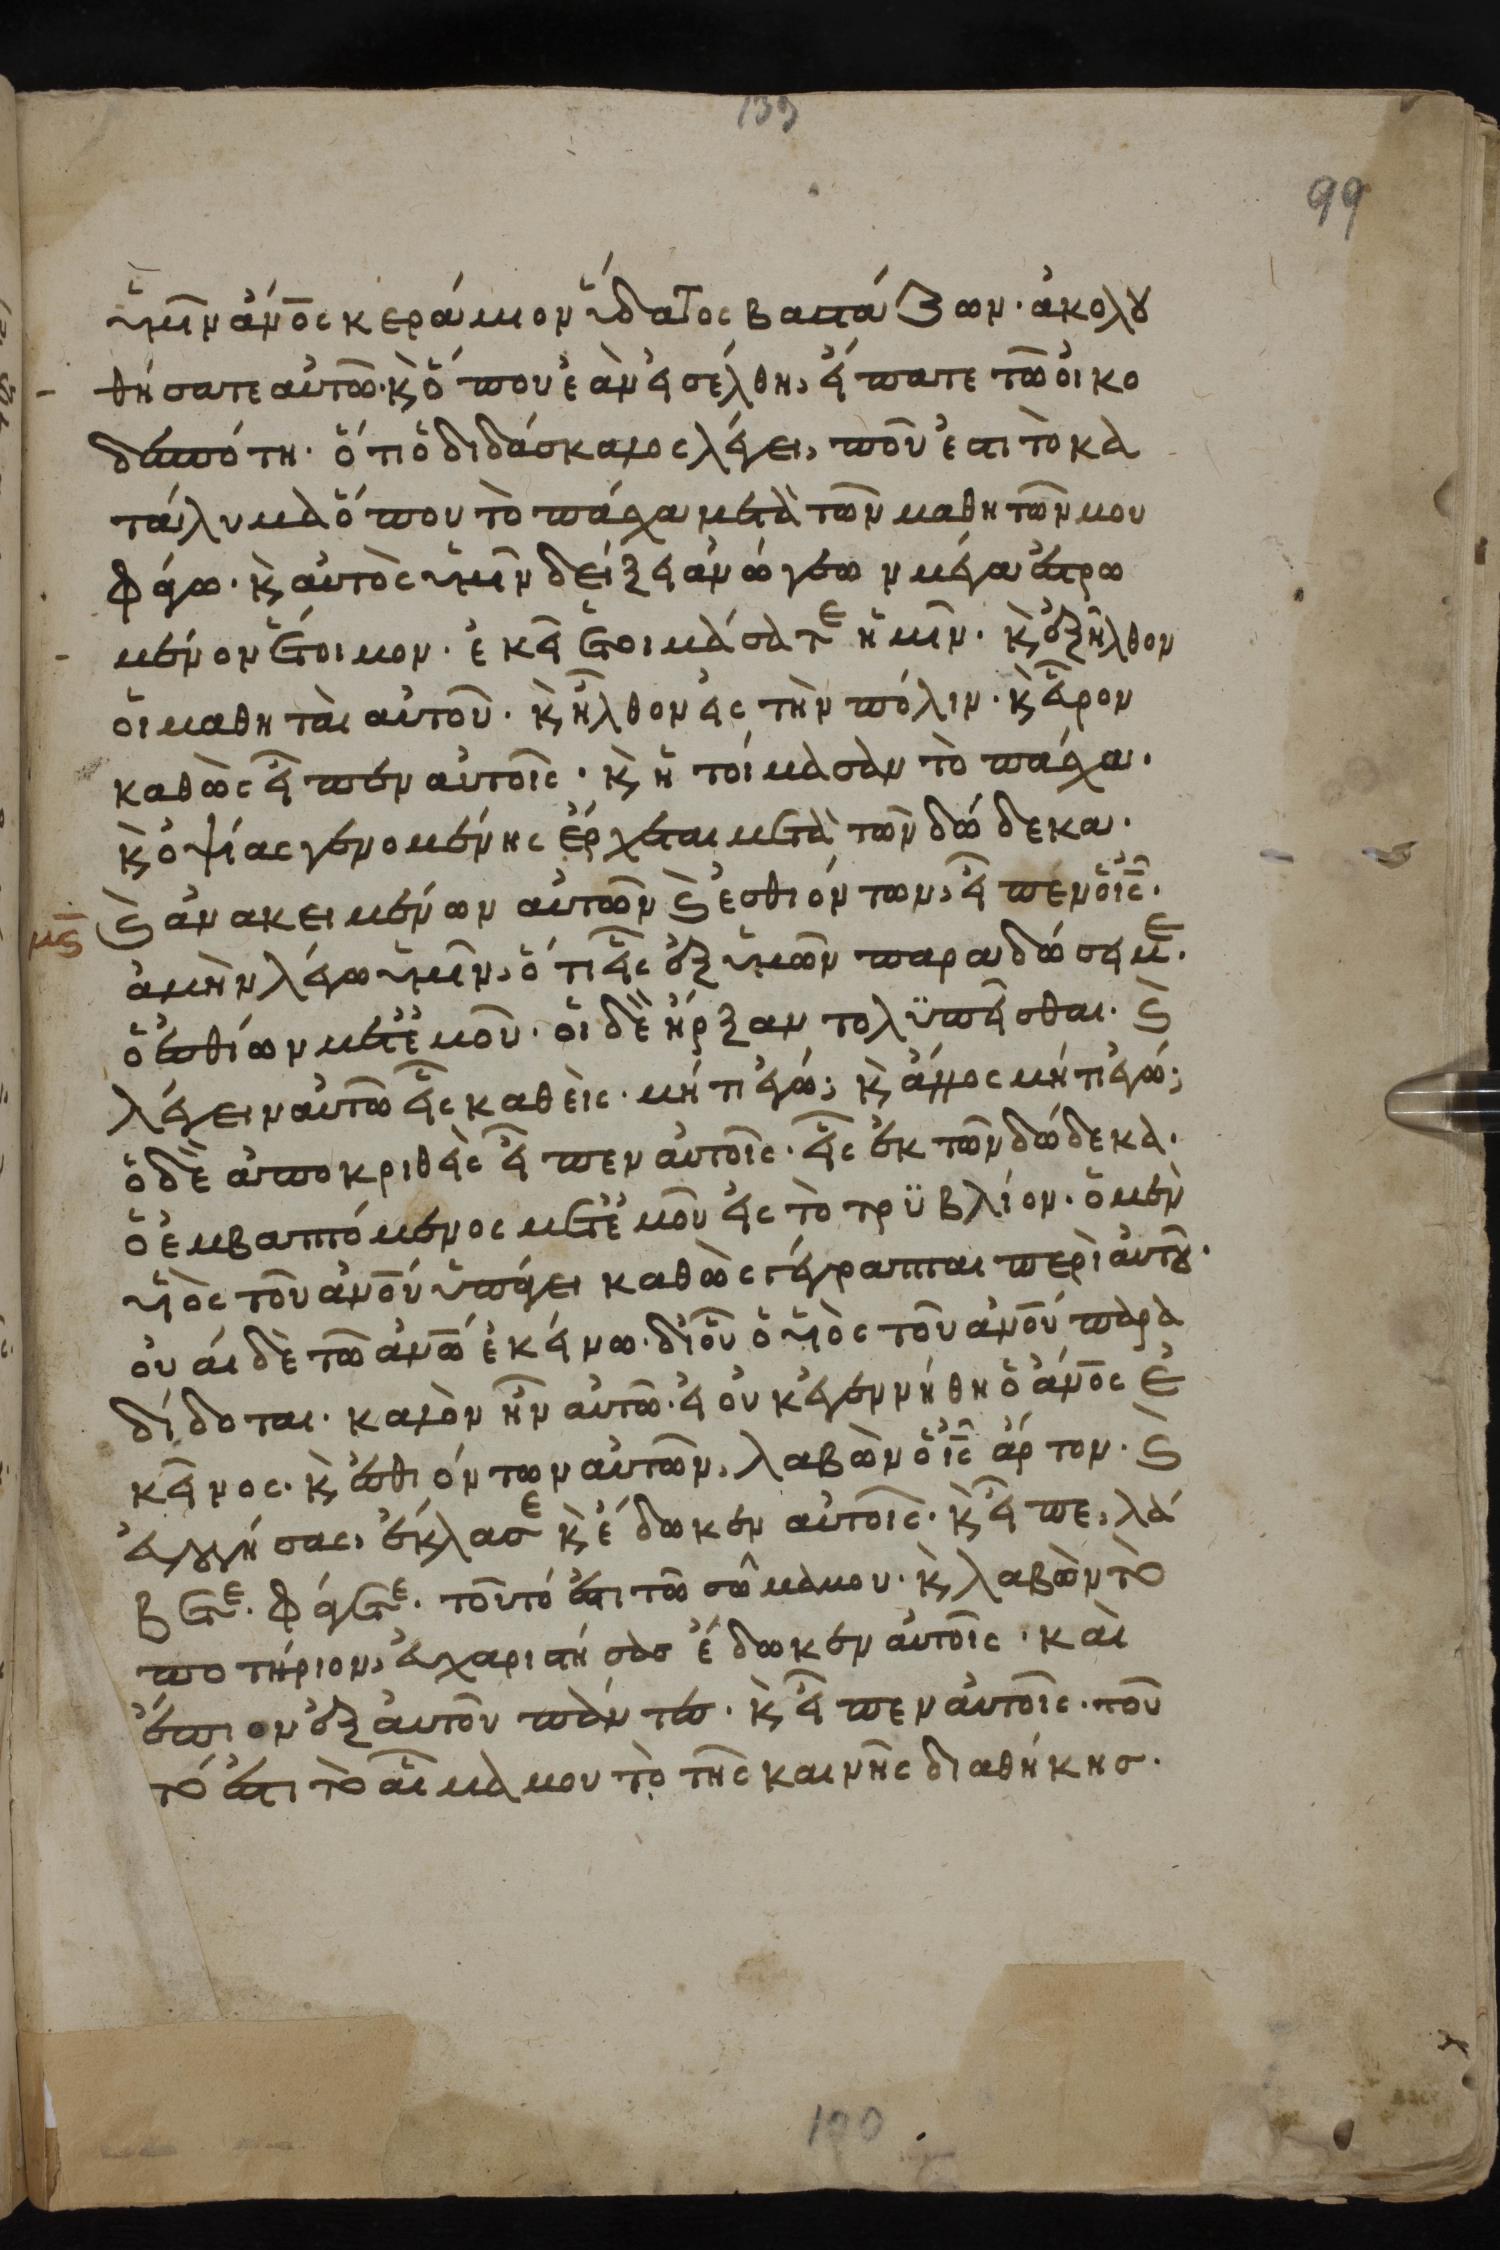 139
99
ὑμῖν ἀνος κεράμιον ὕδατος βαστάζων· ἀκολου
θήσατε αὐτῶ· κ ὅπου ἐὰν εἰσέλθη, εἴπατε τῶ οἰκο
δεσπότη· ὅτι ὁ διδάσκαλος λέγει, ποῦ ἐστι τὸ κα
τάλυμα ὅπου τὸ πάσχα μετὰ τῶν μαθητῶν μου
φάγω· κ αὐτὸς ὑμῖν δείξει ἀνώγεων μέγα ἐστρω
μένον ἕτοιμον· ἐκεῖ ἑτοιμάσατε ἡμῖν· κ ἐξῆλθον
οἱ μαθηταὶ αὐτοῦ· κ ἦλθον εἰς τὴν πόλιν· κ εὗρον
καθὼς εἶπεν αὐτοῖς· κ ἡτοίμασαν τὸ πάσχα·
κ ὀψίας γενομένης ἔρχεται μετὰ τῶν δώδεκα·
μς κ ἀνακειμένων αὐτῶν κ ἐσθιόντων, εἶπεν ὁ ις·
ἀμὴν λέγω ὑμῖν, ὅτι εἷς ἐξ ὑμῶν παραδώσει με·
ὁ ἐσθίων μετ' ἐμοῦ· οἱ δὲ ἤρξαντο λϋπεῖσθαι· κ
λέγειν αὐτῶ εἷς καθεὶς· μήτι ἐγώ; κ ἄλλος μήτι ἐγώ;
ὁ δὲ ἀποκριθεὶς εἶπεν αὐτοῖς· εἷς ἐκ τῶν δώδεκα·
ὁ ἐμβαπτόμενος μετ' ἐμοῦ εἰς τὸ τρϋβλίον· ὁ μὲν
υἱὸς τοῦ ἀνου ὑπάγει καθὼς γέγραπται περὶ αὐτοῦ·
οὐαὶ δὲ τῶ ἀνω ἐκείνω· δι' οὗ ὁ υἱὸς τοῦ ἀνου παρα
δίδοται· καλὸν ἦν αὐτῶ· εἰ οὐκ ἐγεννήθη ὁ ἀνος ἐ
κεῖνος· κ ἐσθιόντων αὐτῶν, λαβὼν ὁ ις ἄρτον· κ
εὐλογήσας, ἔκλασε κ ἔδωκεν αὐτοῖς· κ εἶπε, λά
βετε· φάγετε· τοῦτό ἐστι τῶ σῶμα μου· κ λαβὼν τὸ
ποτήριον, εὐχαριστήσασ ἔδωκεν αὐτοῖς· καὶ
ἔπιον ἐξ αὐτοῦ πάντες· κ εἶπεν αὐτοῖς· τοῦ
τό ἐστι τὸ αἷμα μου τὸ τῆς καινῆς διαθήκησ·
100